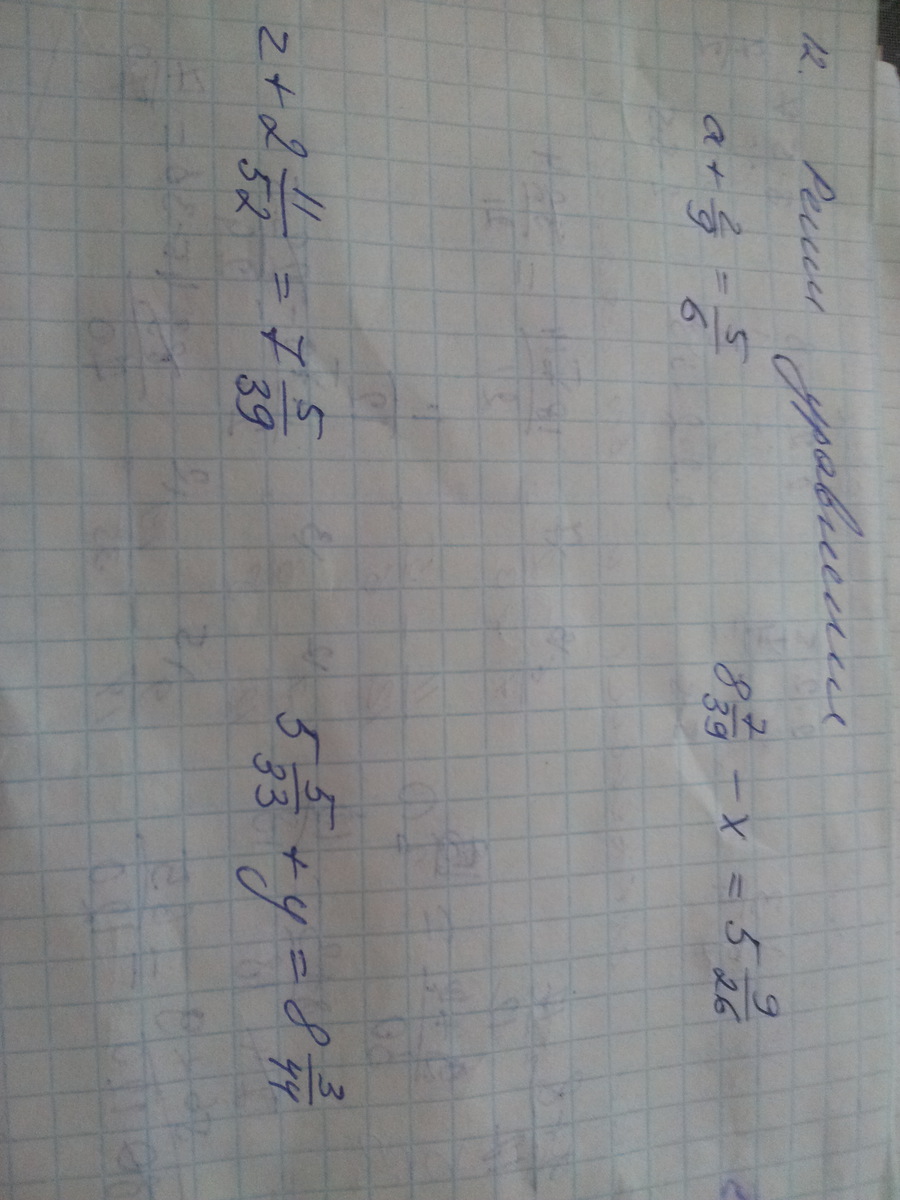 12. Реши уравнения
a + 2/9 = 5/6
8 7/39 - x = 5 9/26
z + 2 11/52 = 7 5/39
5 5/33 + y = 8 3/44